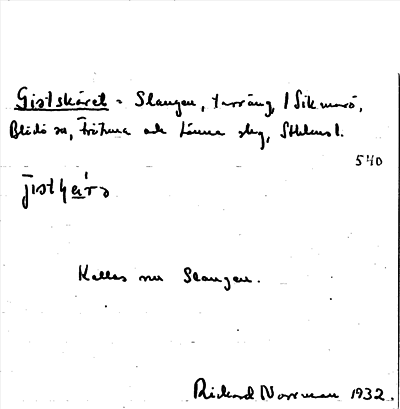 Gistskäret = Slangen, terräng, I Sikmarö,
Blidö sn, Frötuna och Länna skg, Sthlms l.
540
Kallas nu Slangen.
Rickard Norrman 1932.